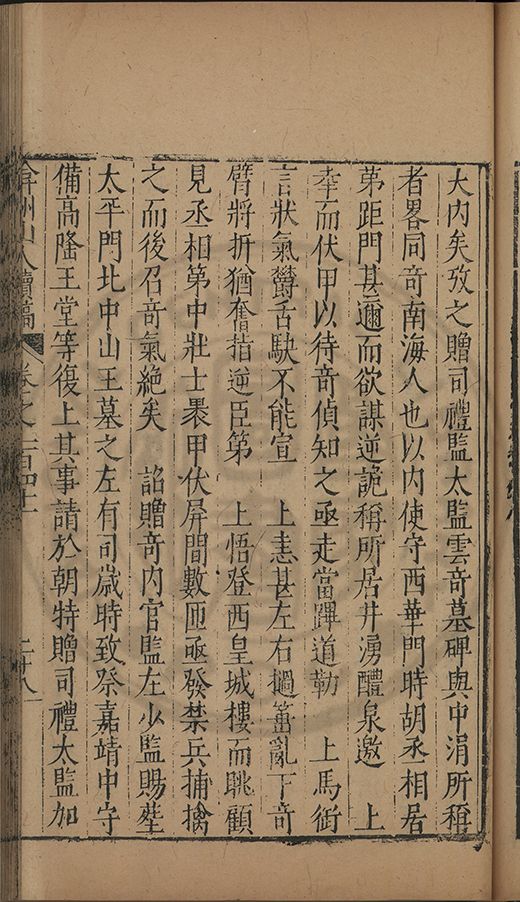 大内矣攷之贈司禮監太監雲奇墓碑與中涓所稱
者畧同奇南海人也以内使守西華門時胡丞相居
第距門甚邇而欲謀逆詭稱所居井湧醴泉邀 上
幸而伏甲以待奇偵知之亟走當蹕道勒 上馬銜
言狀氣欝舌駃不能宣 上恚甚左右撾箠亂下奇
臂將折猶奮指逆臣第 上悟登西皇城樓而眺顧
見丞相第中壯士褁甲伏屏間數匝亟發禁兵捕擒
之而後召奇氣絶矣 詔贈奇内官監左少監賜塟
太平門北中山王墓之左有司歳時致祭嘉靖中守
備高隆王堂等復上其事請於朝特贈司禮太監加
弇州山人續稿 卷之一百四十一 二十八